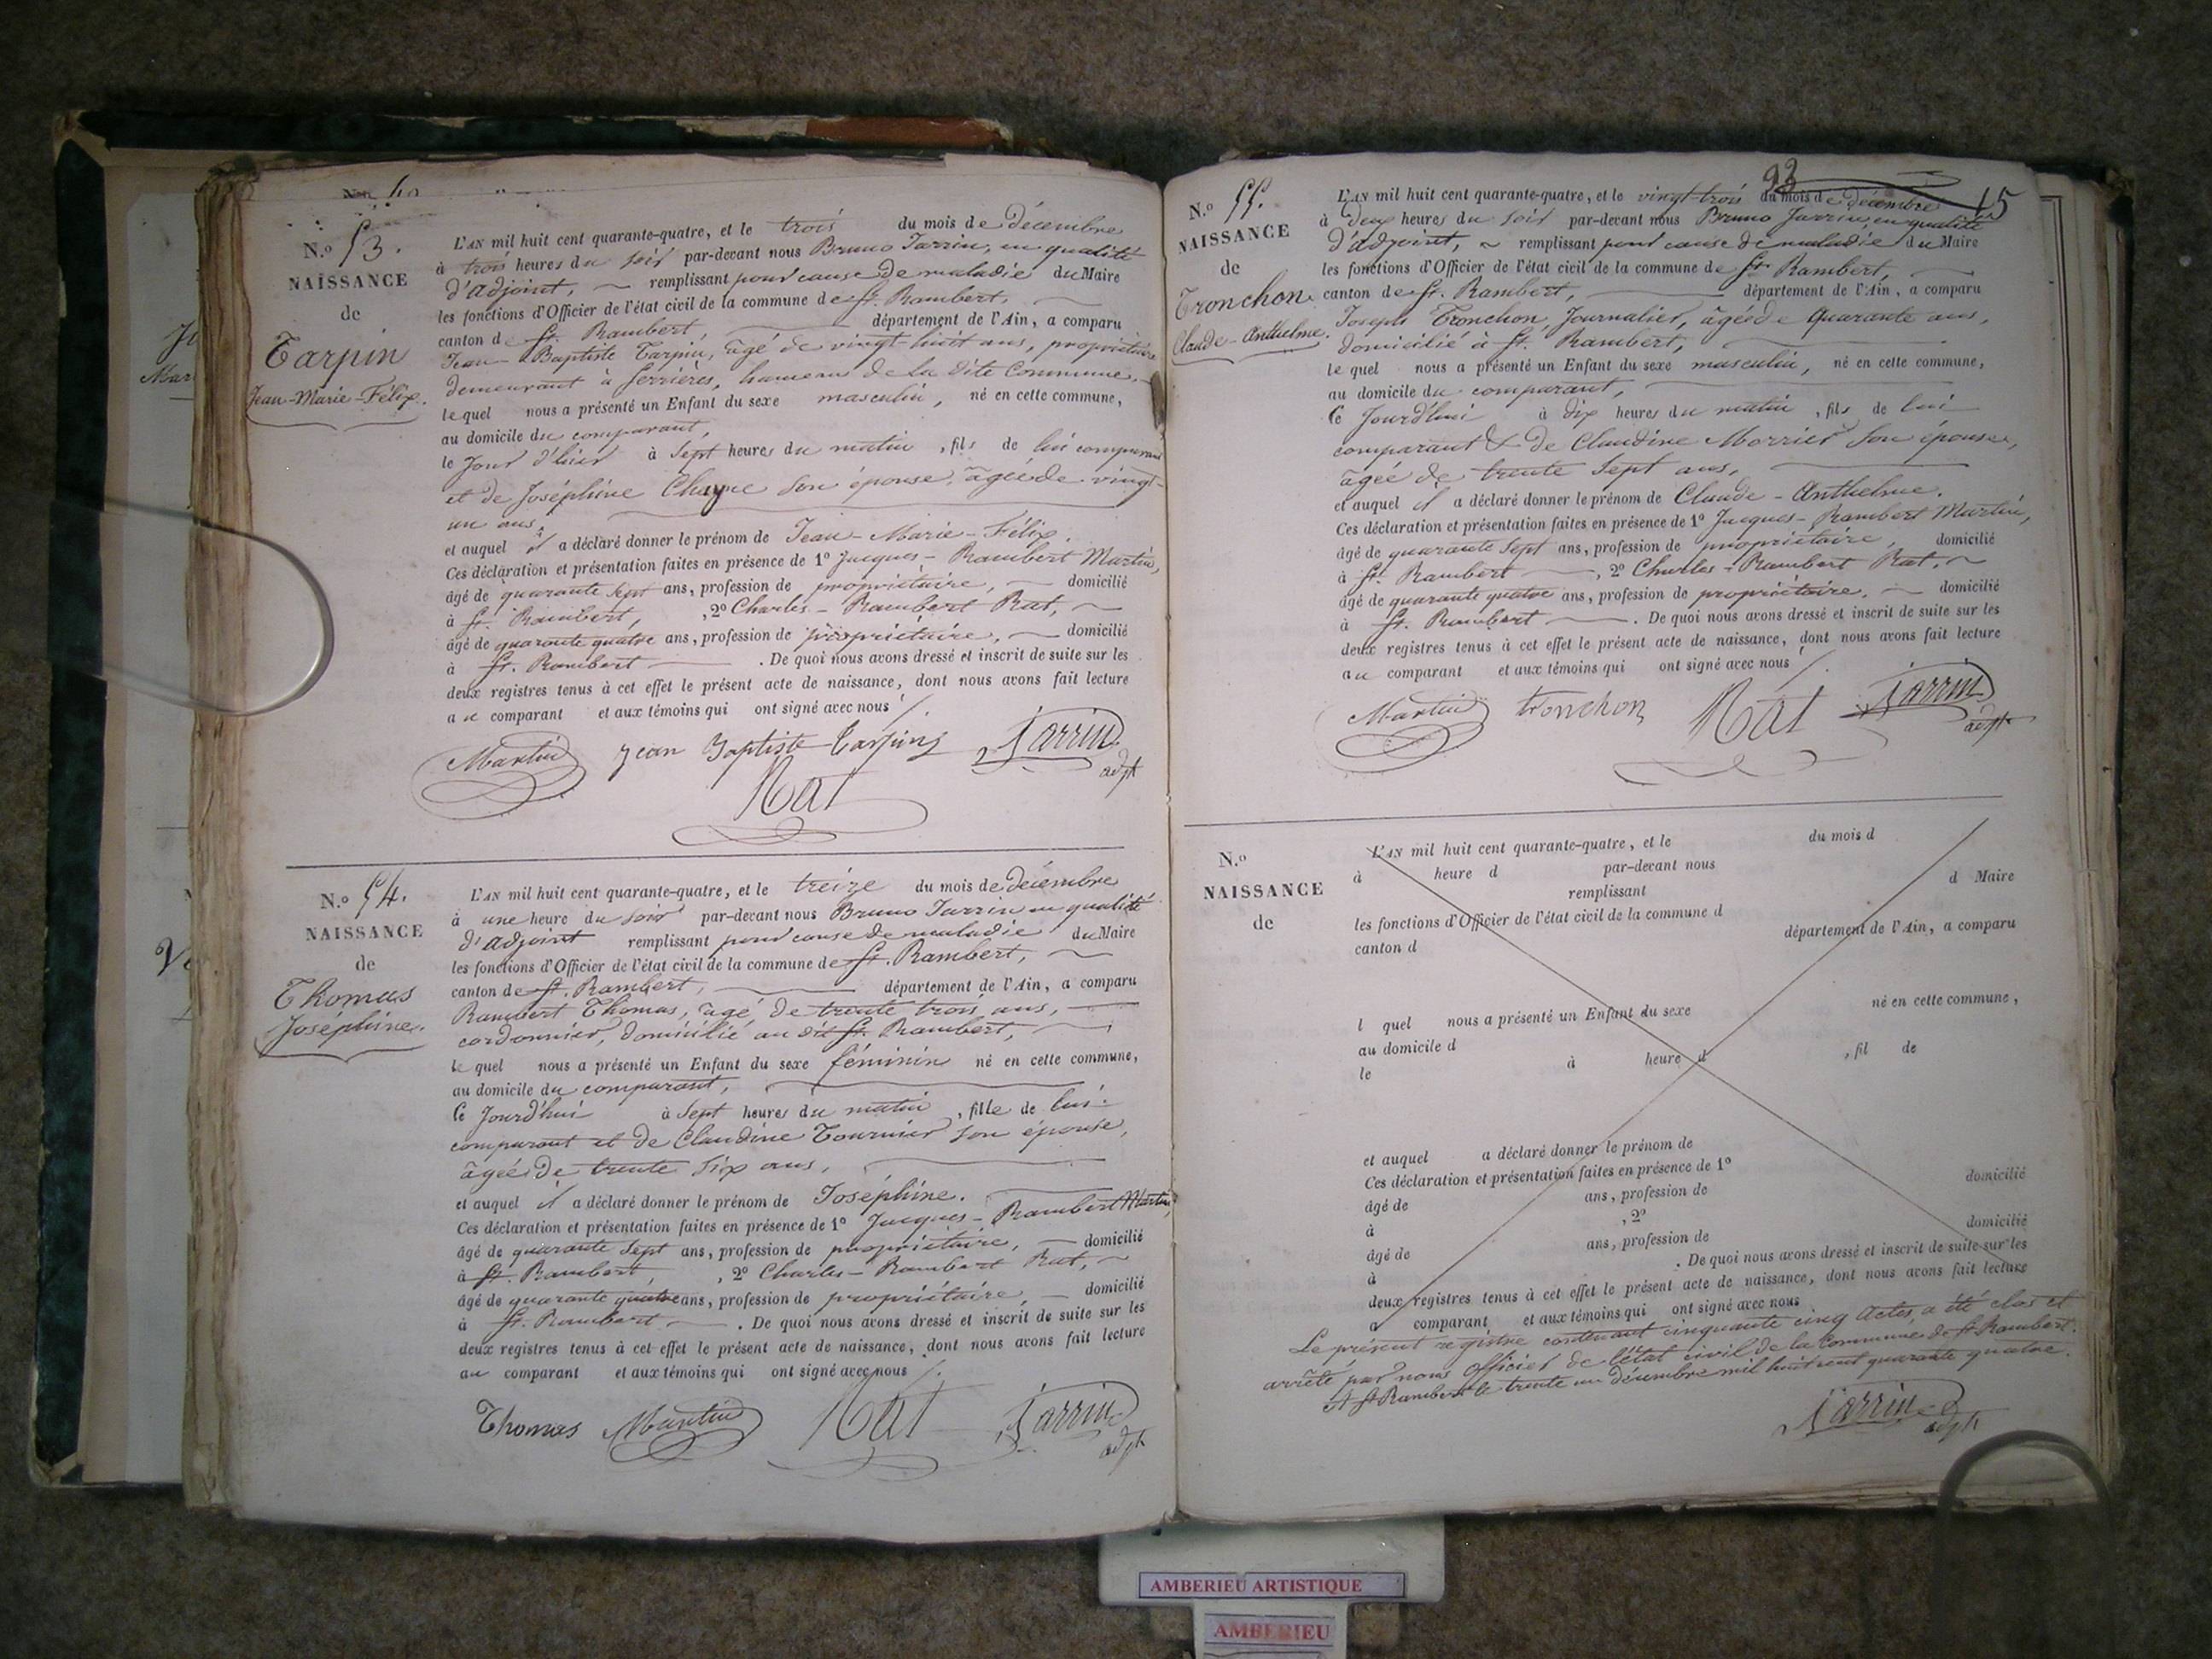 N.o 53.
NAISSANCE
de
Tarpin
Jean-Marie-Félix.
L'AN mil huit cent quarante-quatre, et le trois du mois de décembre
à trois heures du soir par-devant nous Bruno Jarrin, en qualité
d'adjoint, remplissant pour cause de maladie du Maire
les fonctions d'Officier de l'état civil de la commune de St. Rambert,
canton de St. Rambert, département de l'Ain, a comparu
Jean-Baptiste Tarpin, âgé de vingt huit ans, propriétaire
demeurant à Serrières, hameau de la dite Commune,
lequel nous a présenté un Enfant du sexe masculin, né en cette commune,
au domicile du comparant,
le Jour d'hier à Sept heures du matin, fils de lui comparant
et de Joséphine Chayne son épouse, âgée de vingt-
un ans.
et auquel il a déclaré donner le prénom de Jean-Marie-Félix.
Ces déclaration et présentation faites en présence de 1o Jacques-Rambert Martin,
âgé de quarante Sept ans, profession de propriétaire, domicilié
à St. Rambert, 2o Charles-Rambert Rat,
âgé de quarante quatre ans, profession de propriétaire, domicilié
à St. Rambert. De quoi nous avons dressé et inscrit de suite sur les
deux registres tenus à cet effet le présent acte de naissance, dont nous avons fait lecture
au comparant et aux témoins qui ont signé avec nous
Martin Jean Baptiste Tarpin Jarrin
adjt
Rat
N.o 54.
NAISSANCE
de
Thomas
Joséphine.
L'AN mil huit cent quarante-quatre, et le treize du mois de décembre
à une heure du soir par-devant nous Bruno Jarrin en qualité
d'adjoint remplissant pour cause de maladie du Maire
les fonctions d'Officier de l'état civil de la commune de St. Rambert,
canton de St. Rambert, département de l'Ain, a comparu
Rambert Thomas, âgé de trente trois ans,
cordonnier, domicilié au dit St. Rambert,
lequel nous a présenté un Enfant du sexe féminin né en cette commune,
au domicile du comparant,
Ce Jourd'hui à Sept heures du matin, fille de lui
comparant et de Claudine Tournier son épouse,
âgée de trente six ans,
et auquel il a déclaré donner le prénom de Joséphine.
Ces déclaration et présentation faites en présence de 1o Jacques-Rambert Martin,
âgé de quarante Sept ans, profession de propriétaire, domicilié
à St. Rambert, 2o Charles-Rambert Rat,
âgé de quarante quatre ans, profession de propriétaire, domicilié
à St. Rambert. De quoi nous avons dressé et inscrit de suite sur les
deux registres tenus à cet effet le présent acte de naissance, dont nous avons fait lecture
au comparant et aux témoins qui ont signé avec nous
Thomas Martin Rat Jarrin
adjt
93
15
N.o 55.
NAISSANCE
de
Tronchon
Claude-Anthelme.
L'AN mil huit cent quarante-quatre, et le vingt-trois du mois de décembre
à Deux heures du soir par-devant nous Bruno Jarrin, en qualité
d'adjoint, remplissant pour cause de maladie du Maire
les fonctions d'Officier de l'état civil de la commune de St. Rambert,
canton de St. Rambert, département de l'Ain, a comparu
Joseph Tronchon, Journalier, âgé de Quarante ans,
domicilié à St. Rambert,
lequel nous a présenté un Enfant du sexe masculin, né en cette commune,
au domicile du comparant,
Ce Jourd'hui à dix heures du matin, fils de lui
comparant & de Claudine Morrier son épouse,
âgée de trente Sept ans,
et auquel il a déclaré donner le prénom de Claude-Anthelme.
Ces déclaration et présentation faites en présence de 1o Jacques-Rambert Martin,
âgé de quarante Sept ans, profession de propriétaire, domicilié
à St. Rambert, 2o Charles-Rambert Rat,
âgé de quarante quatre ans, profession de propriétaire, domicilié
à St. Rambert. De quoi nous avons dressé et inscrit de suite sur les
deux registres tenus à cet effet le présent acte de naissance, dont nous avons fait lecture
au comparant et aux témoins qui ont signé avec nous
Martin tronchon Rat Jarrin
adjt
N.o
NAISSANCE
de
L'AN mil huit cent quarante-quatre, et le du mois d
à heure d par-devant nous
remplissant d Maire
les fonctions d'Officier de l'état civil de la commune d
canton d département de l'Ain, a comparu
l quel nous a présenté un Enfant du sexe né en cette commune,
au domicile d
le à heure d , fil de
et auquel a déclaré donner le prénom de
Ces déclaration et présentation faites en présence de 1o
âgé de ans, profession de domicilié
à , 2o
âgé de ans, profession de domicilié
à . De quoi nous avons dressé et inscrit de suite sur les
deux registres tenus à cet effet le présent acte de naissance, dont nous avons fait lecture
a comparant et aux témoins qui ont signé avec nous
Le présent registre contenant cinquante cinq actes, a été clos et
arrêté par nous officier de l'état civil de la Commune de St Rambert.
A St Rambert le trente un décembre mil huit cent quarante quatre.
Jarrin
adjt
AMBERIEU ARTISTIQUE
AMBERIEU